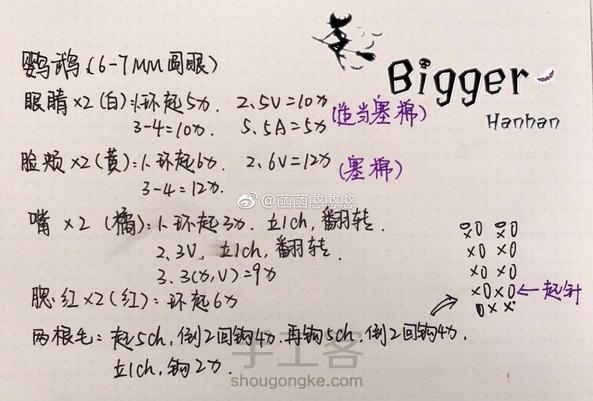 Bigger
Hanhan
鹦鹉(6-7MM圆眼)
眼睛×2(白):1.环起5力 2.5V=10力
3-4=10力. 5.5A=5力(适当塞棉)
脸颊×2(黄):1.环起6力 2.6V=12力
3-4=12力. (塞棉)
@菡菡憨憨憨
嘴×2(橘):1.环起3力.立1ch,翻转
2.3V,立1ch,翻转.
3.3(x,V)=9力
腮红×2(红):环起6力
←起针
两根毛:起5ch,倒2回钩4力.再钩5ch,倒2回钩4力.
立1ch,钩2力.
手工客
shougongke.com